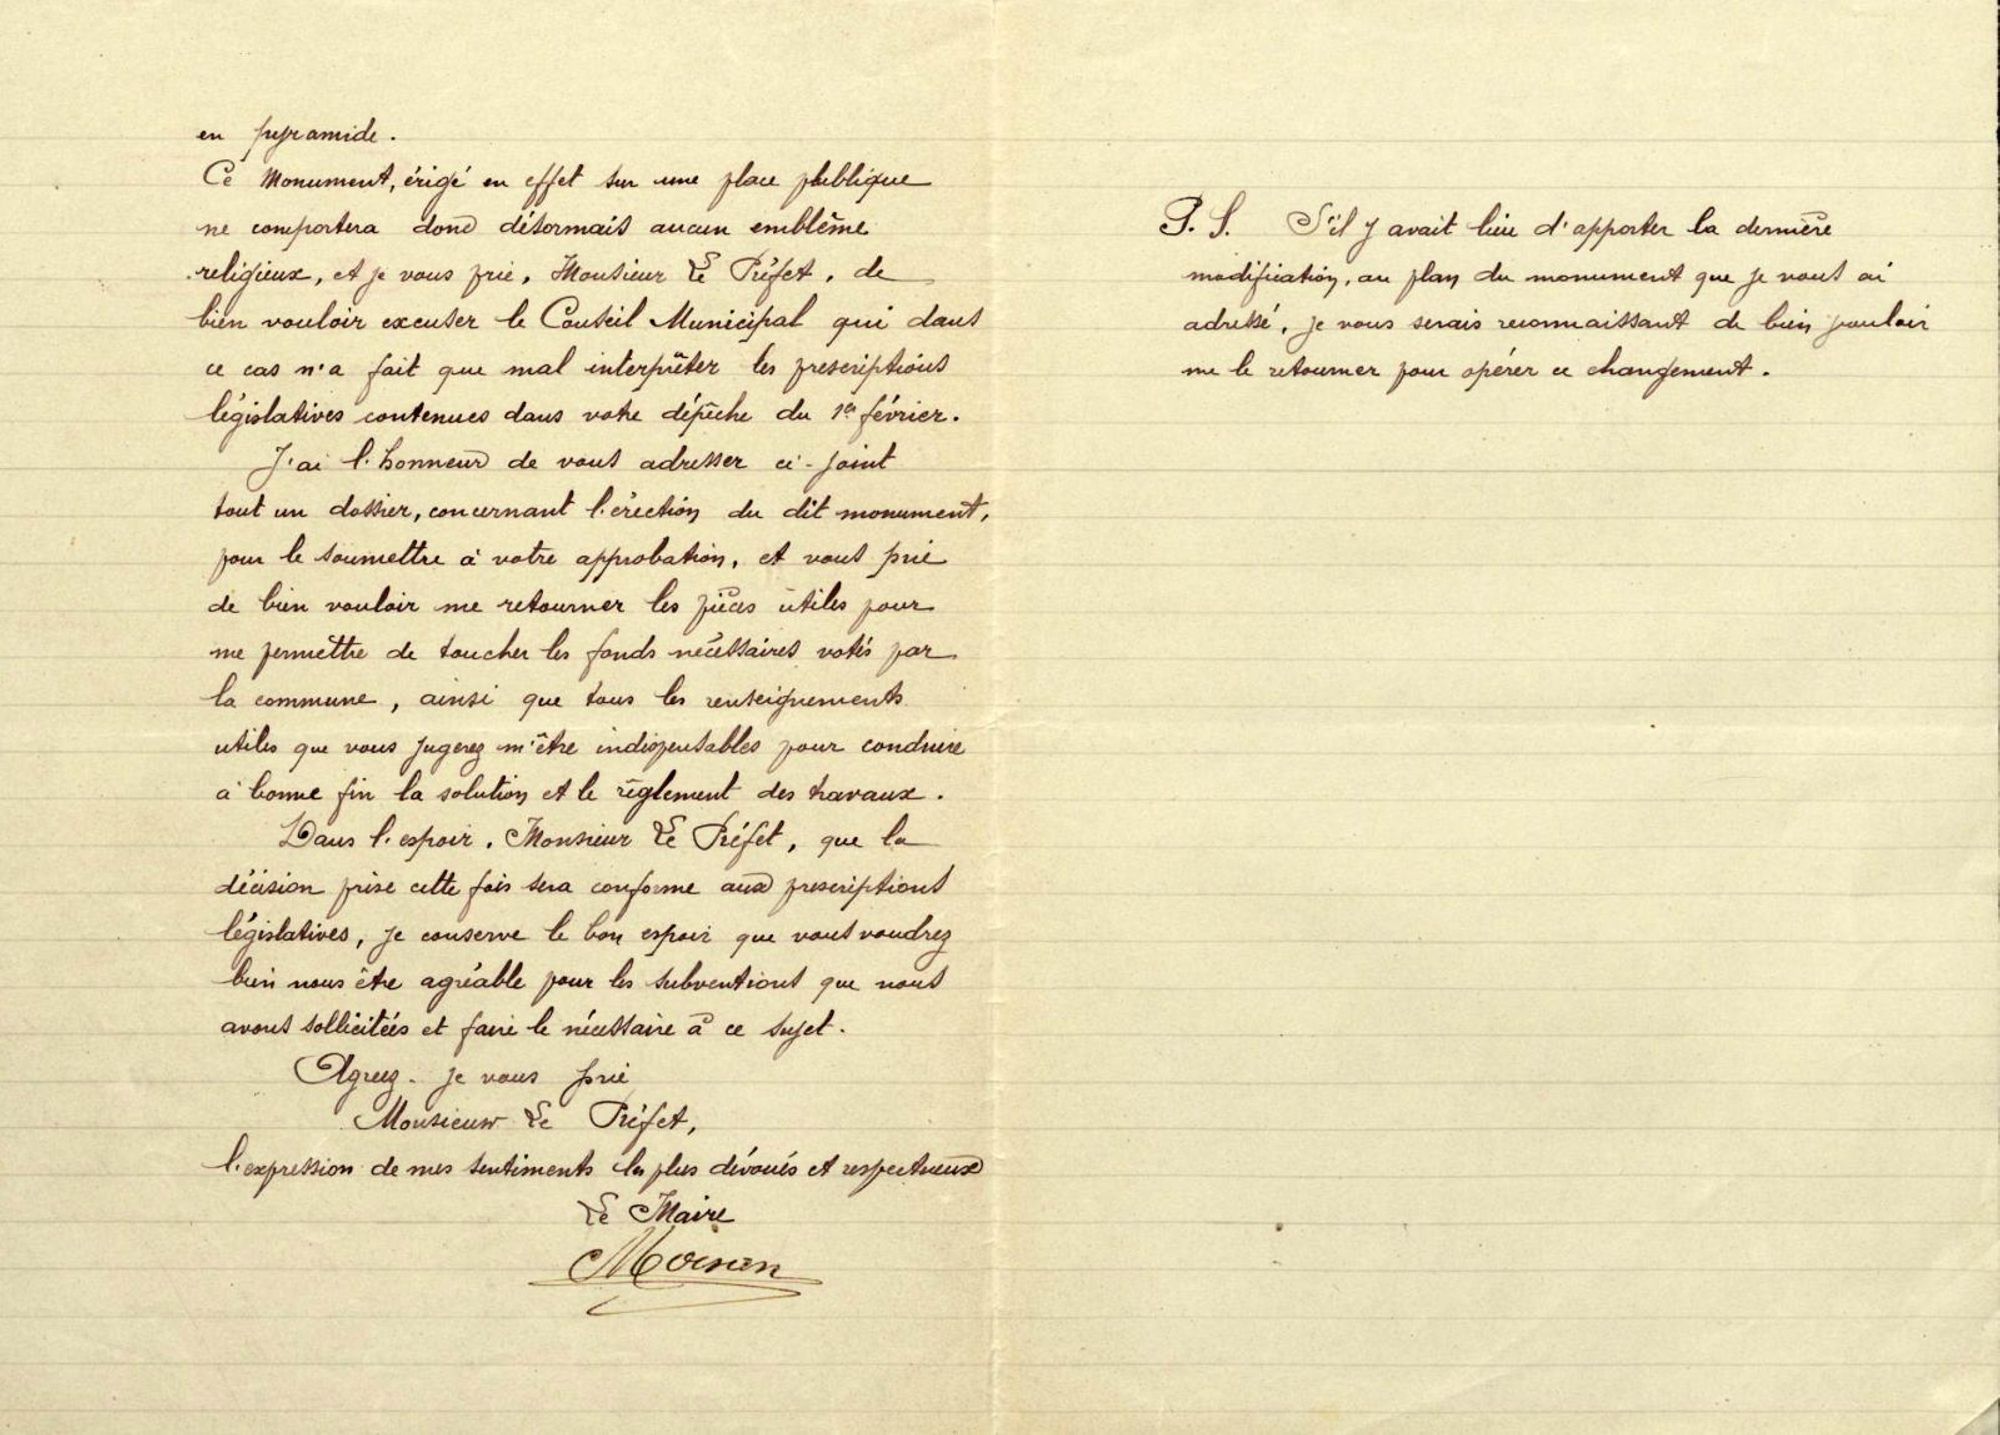 en pyramide.
Ce Monument, érigé en effet sur une place publique
ne comportera donc désormais aucun emblême
religieux, et je vous prie, Monsieur Le Préfet, de
bien vouloir excuser le Conseil Municipal qui dans
ce cas n'a fait que mal interprêter les prescriptions
législatives contenues dans votre dépêche du 1er février.
J'ai l'honneur de vous adresser ci-joint
tout un dossier, concernant l'érection du dit monument,
pour le soumettre à votre approbation, et vous prie
de bien vouloir me retourner les pièces utiles pour
me permettre de toucher les fonds nécessaires votés par
la commune, ainsi que tous les renseignements
utiles que vous jugerez m'être indispensables pour conduire
à bonne fin la solution et le règlement des travaux.
Dans l'espoir, Monsieur Le Préfet, que la
décision prise cette fois sera conforme aux prescriptions
législatives, je conserve le bon espoir que vous voudrez
bien nous être agréable pour les subventions que nous
avons sollicitées et faire le nécessaire à ce sujet.
Agréez. je vous prie
Monsieur Le Préfet,
l'expression de mes sentiments les plus dévoués et respectueux
Le Maire
P. S. S'il y avait lieu d'apporter la dernière
modification, au plan du monument que je vous ai
adressé, je vous serais reconnaissant de bien vouloir
me le retourner pour opérer ce changement.